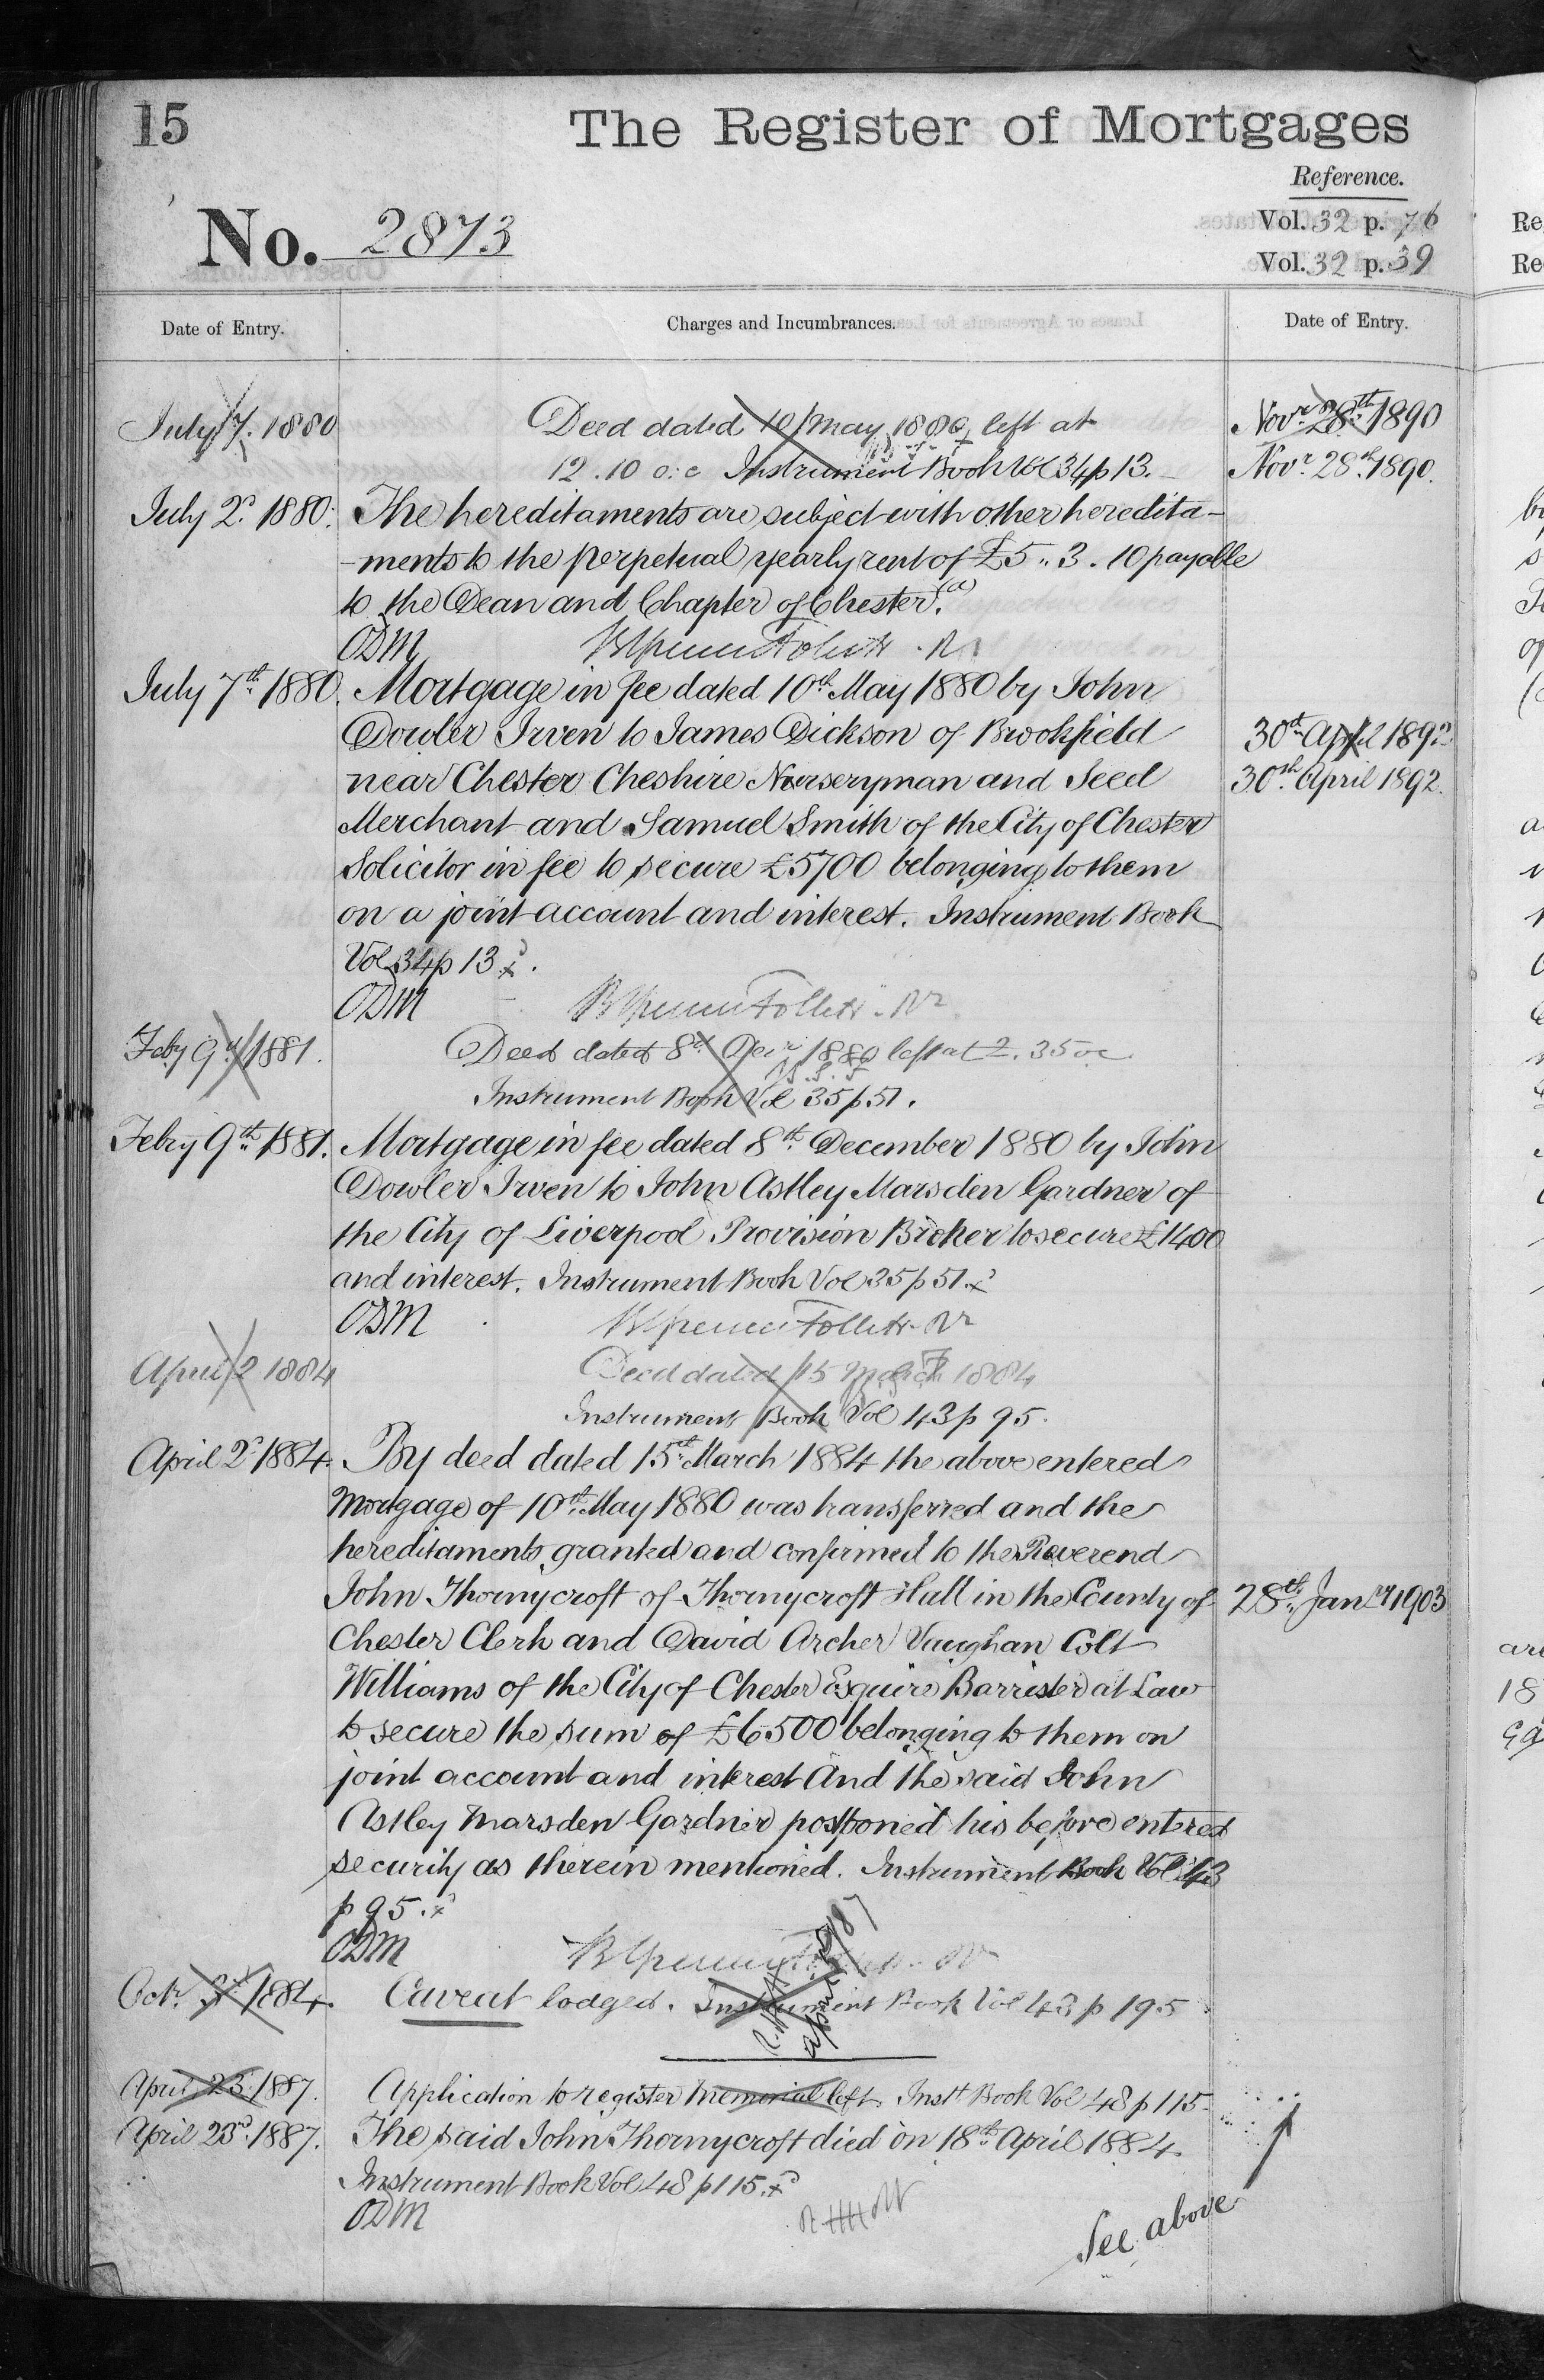 15
The Register of Mortgages
Reference.
No. 2873
Vol. 32 p. 76
Vol. 32 p. 39
Date of Entry.
Charges and Incumbrances.
Date of Entry.
July 7. 1880
Deed dated 10 May 1880 left at
12.10 o.c Instrument Book Vol 34 p 13.
July 2d 1880.
The hereditaments are subject with other heredita-
-ments to the perpetual yearly rent of £5.. 3. 10 payable
to the Dean and Chapter of Chester. (a)
ODM
July 7th 1880.
Mortgage in fee dated 10th May 1880 by John
Dowler Irven to James Dickson of Brookfield
near Chester Cheshire Nurseryman and Seed
Merchant and Samuel Smith of the City of Chester
Solicitor in fee to secure £5700 belonging to them
on a joint account and interest. Instrument Book
Vol 34 p 13.
ODM
Feby 9th 1881.
Deed dated 8th Decr 1880 left at 2.35 oc
Instrument Book Vol 35 p 51.
Febry 9th 1881.
Mortgage in fee dated 8th December 1880 by John
Dowler Irven to John Astley Marsden Gardner of
the City of Liverpool Provision Broker to secure £1400
and interest. Instrument Book Vol 35 p 51.
ODM
April 2 1884
Deed dated 15 March 1884
Instrument Book Vol 43 p 95.
April 2d 1884.
By deed dated 15th March 1884 the above entered
Mortgage of 10th May 1880 was transferred and the
hereditaments granted and confirmed to the Reverend
John Thornycroft of Thornycroft Hall in the County of
Chester Clerk and David Archer Vaughan Colt
Williams of the City of Chester Esquire Barrister at Law
to secure the sum of £6500 belonging to them on
joint account and interest And the said John
Astley Marsden Gardner postponed his before entered
security as therein mentioned. Instrument Book Vol 43
p 95.
ODM
Octr 1884.
Caveat lodged. Instrument Book Vol 43 p 195
April 23. 1887.
Application to register Memorial left. Inst Book Vol 48 p 115
April 23d 1887.
The said John Thornycroft died on 18th April 1884
Instrument Book Vol 48 p 115.
ODM
See above
Novr 28th 1890
Novr 28th 1890.
30th April 1892
30th April 1892.
28th Jany 1903